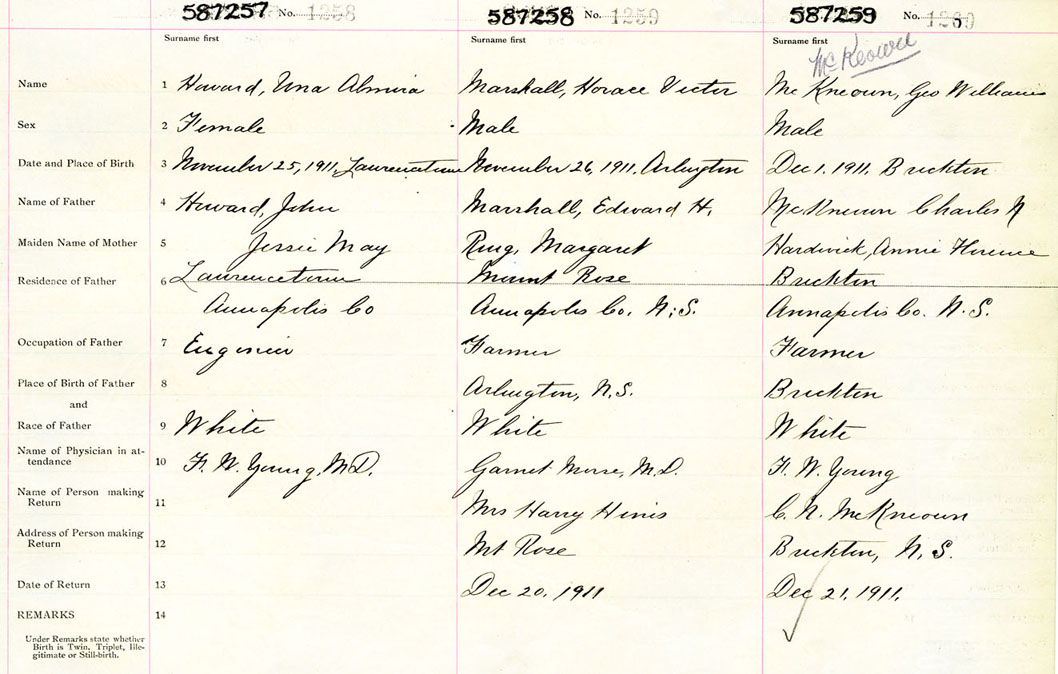 587257 No. 1258
587258 No. 1259
587259 No. 1260
Surname first
Surname first
Surname first
McKeown
Name 1 Howard, Una Almira
Marshall, Horace Victor
McKneown, Geo William
Sex 2 Female
Male
Male
Date and Place of Birth 3 November 25, 1911, Laurencetown
November 26, 1911, Arlington
Dec 1. 1911. Brickton
Name of Father 4 Howard, John
Marshall, Edward H.
McKneown Charles N
Maiden Name of Mother 5 Jessie May
Ring, Margaret
Hardwick, Annie Florence
Residence of Father 6 Laurencetown
Mount Rose
Brickton
Annapolis Co
Annapolis Co. N.S.
Annapolis Co. N.S.
Occupation of Father 7 Engineer
Farmer
Farmer
Place of Birth of Father 8
Arlington, N.S.
Brickton
and
Race of Father 9 White
White
White
Name of Physician in at-
tendance 10 F. W. Young, M.D.
Garnet Morse, M.D.
F. W. Young
Name of Person making
Return 11
Mrs Harry Hines
C. N. McKneown
Address of Person making
Return 12
Mt Rose
Brickton, N.S.
Date of Return 13
Dec 20, 1911
Dec 21, 1911.
REMARKS 14
Under Remarks state whether
Birth is Twin, Triplet, Ille-
gitimate or Still-birth.